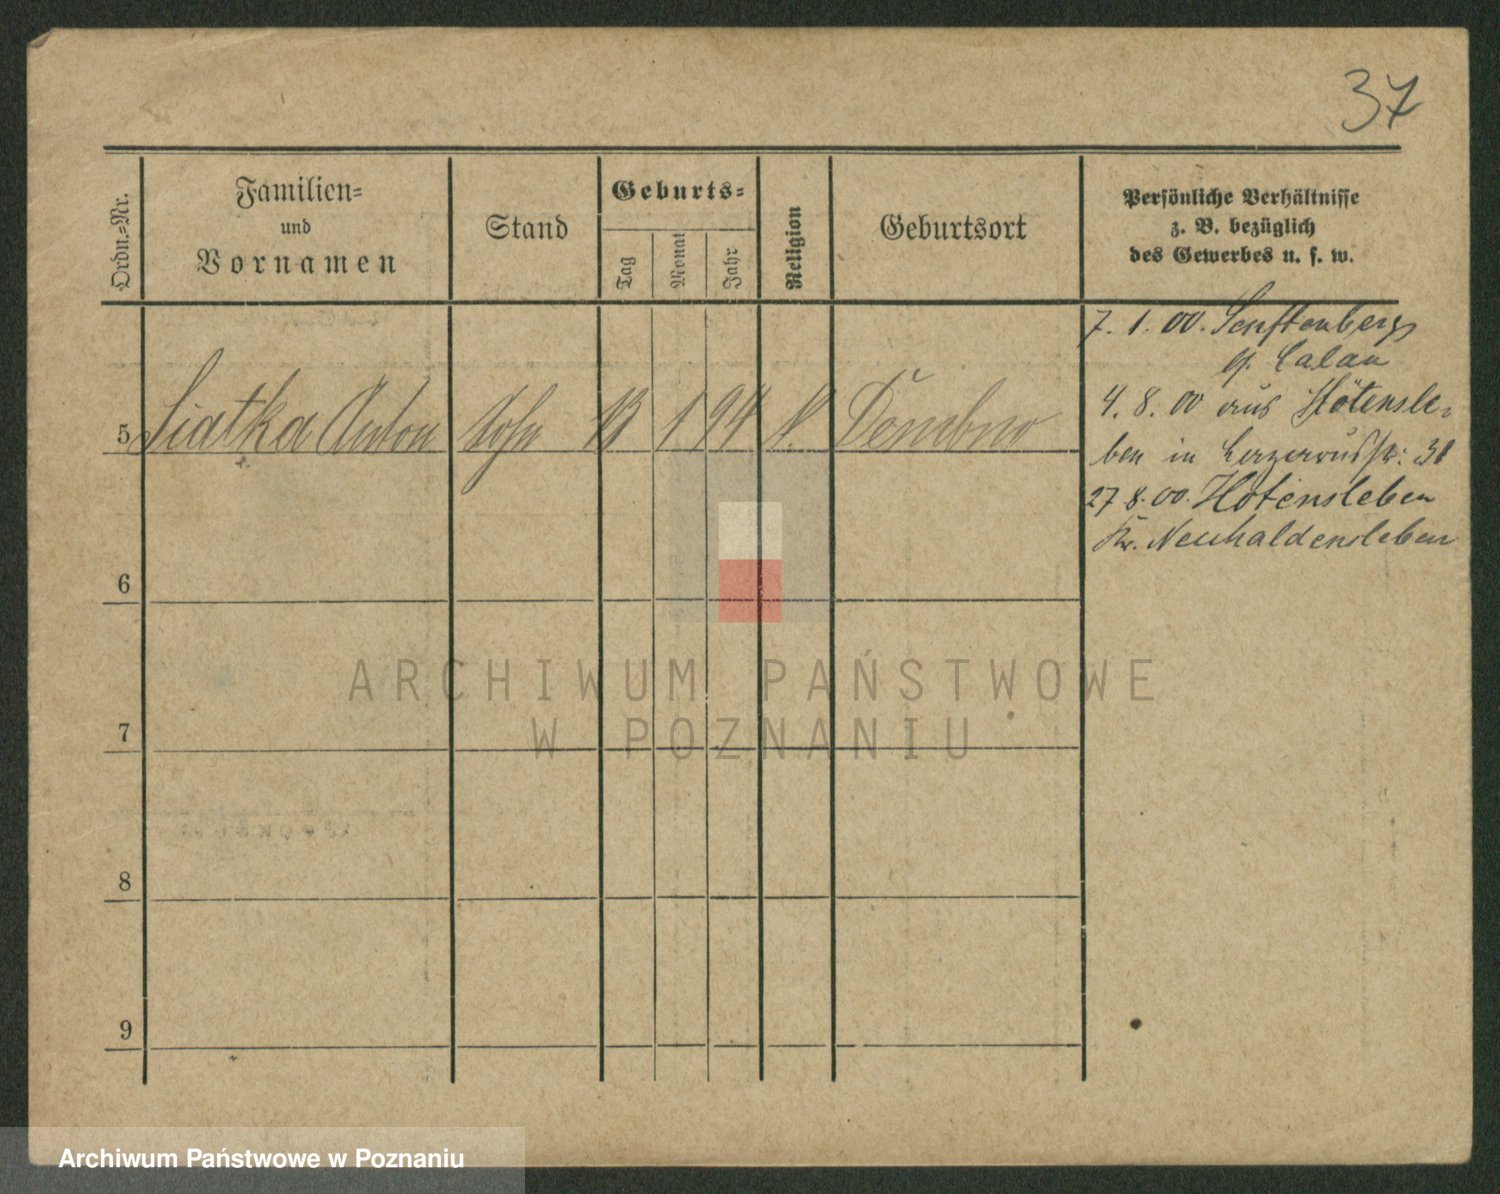 37
Ordn.-Nr.
Familien-
und
Vornamen
Stand
Geburts-
Tag
Monat
Jahr
Religion
Geburtsort
Persönliche Verhältnisse
z. B. bezüglich
des Gewerbes u. s. w.
7. 1. 00. Senftenberg
Calau
4. 8. 00 aus Hötensle-
ben in 31
27. 8. 00. Hötensleben
Kr. Neuhaldensleben
5 Siatka Anton Sohn 13 1 94 K. Dembno
6
7
8
9
ARCHIWUM PAŃSTWOWE
W POZNANIU
Archiwum Państwowe w Poznaniu